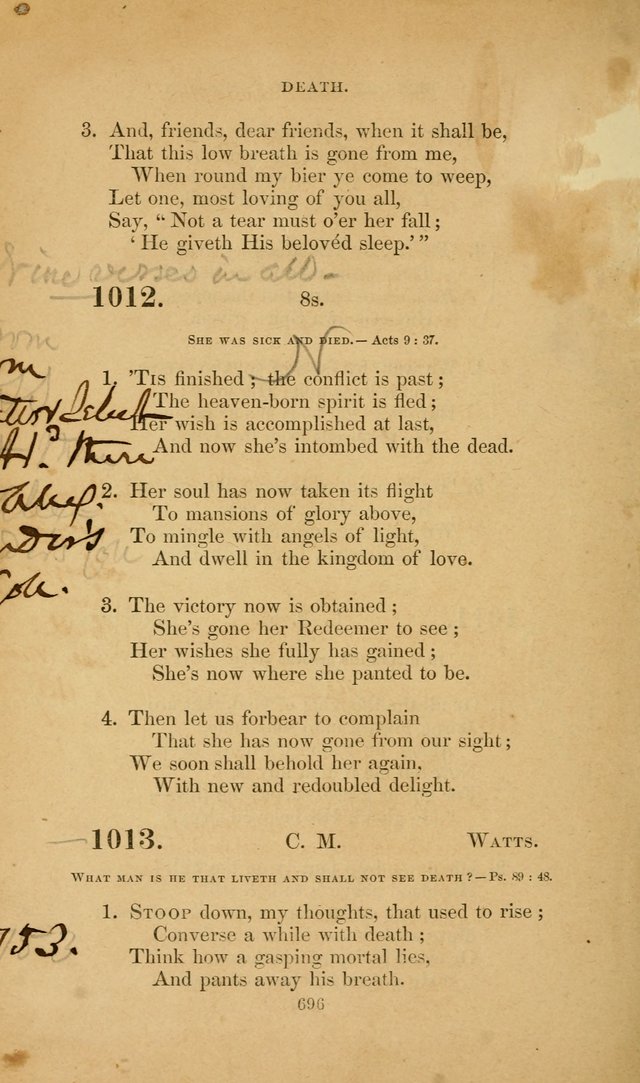 DEATH.
3. And, friends, dear friends, when it shall be,
That this low breath is gone from me,
When round my bier ye come to weep,
Let one, most loving of you all,
Say, “ Not a tear must o'er her fall ;
‘ He giveth His belovéd sleep.’ ”
Nine verses in all.
1012. 8s.
She was sick and died.—Acts 9 : 37.
N
1. 'Tis finished ; the conflict is past ;
The heaven-born spirit is fled ;
Her wish is accomplished at last,
And now she's intombed with the dead.
2. Her soul has now taken its flight
To mansions of glory above,
To mingle with angels of light,
And dwell in the kingdom of love.
3. The victory now is obtained ;
She's gone her Redeemer to see ;
Her wishes she fully has gained ;
She's now where she panted to be.
4. Then let us forbear to complain
That she has now gone from our sight ;
We soon shall behold her again,
With new and redoubled delight.
1013. C. M. Watts.
What man is he that liveth and shall not see death ?—Ps. 89 : 48.
1. Stoop down, my thoughts, that used to rise ;
Converse a while with death ;
Think how a gasping mortal lies,
And pants away his breath.
753.
696